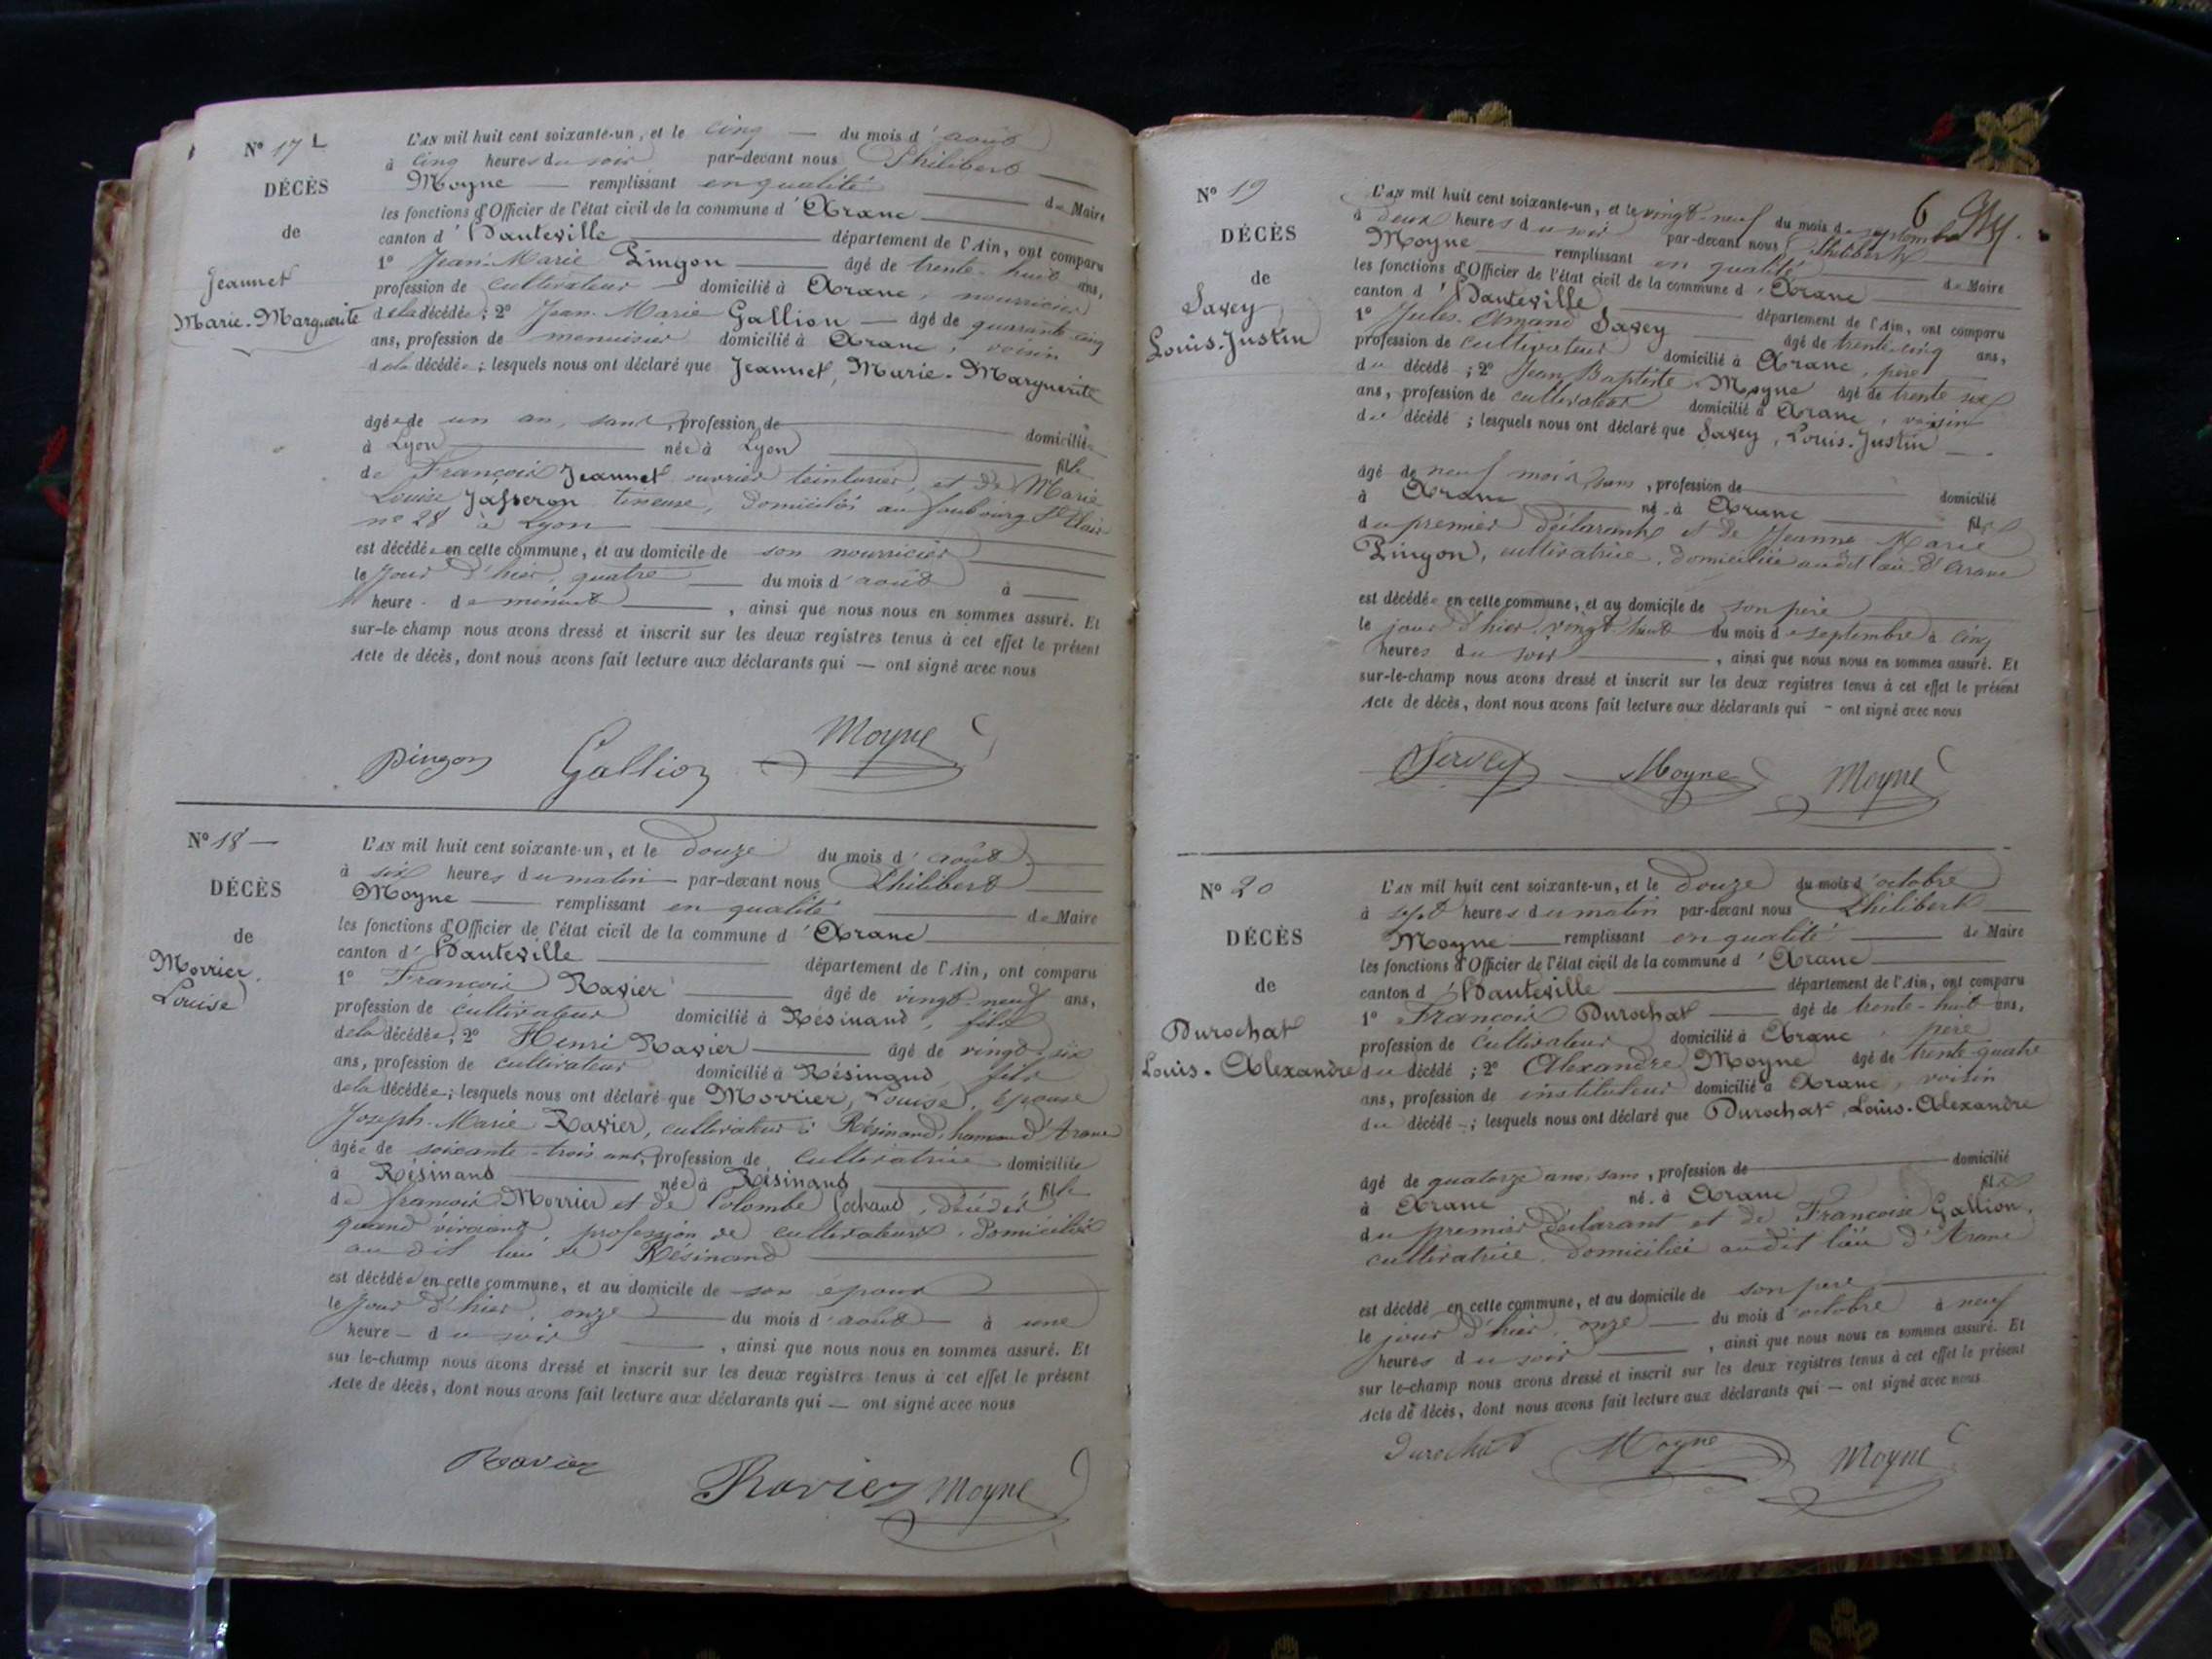 N° 17
DÉCÈS
de
Jeannet
Marie-Marguerite
L'AN mil huit cent soixante-un, et le cinq du mois d'août
à cinq heures du soir par-devant nous Philibert
Moyne remplissant en qualité de Maire
les fonctions d'Officier de l'état civil de la commune d'Aranc
canton d'Hauteville département de l'Ain, ont comparu
1° Jean-Marie Pingon âgé de trente-huit ans,
profession de cultivateur domicilié à Aranc, nourricier
de la décédée ; 2° Jean-Marie Gallion âgé de quarante-cinq
ans, profession de menuisier domicilié à Aranc, voisin
de la décédée ; lesquels nous ont déclaré que Jeannet, Marie-Marguerite
âgée de un an, sans profession de domiciliée
à Lyon née à Lyon fille
de François Jeannet ouvrier teinturier, et de Marie
Louise Jasseron tisseuse, domiciliés au faubourg St Clair
n° 28 à Lyon
est décédée en cette commune, et au domicile de son nourricier
le jour d'hier, quatre du mois d'août à
heure de minuit, ainsi que nous nous en sommes assuré. Et
sur-le-champ nous avons dressé et inscrit sur les deux registres tenus à cet effet le présent
Acte de décès, dont nous avons fait lecture aux déclarants qui — ont signé avec nous
pingon Gallion Moyne
N° 18
DÉCÈS
de
Morrier
Louise
L'AN mil huit cent soixante-un, et le douze du mois d'août
à six heures du matin par-devant nous Philibert
Moyne remplissant en qualité de Maire
les fonctions d'Officier de l'état civil de la commune d'Aranc
canton d'Hauteville département de l'Ain, ont comparu
1° François Ravier âgé de vingt-neuf ans,
profession de cultivateur domicilié à Résinand, fils
de la décédée ; 2° Henri Ravier âgé de vingt-six
ans, profession de cultivateur domicilié à Résinand, fils
de la décédée ; lesquels nous ont déclaré que Morrier, Louise, épouse
Joseph-Marie Ravier, cultivateur à Résinand, hameau d'Aranc
âgée de soixante-trois ans, profession de cultivatrice domiciliée
à Résinand née à Résinand fille
de françois Morrier et de Colombe Cochaud, décédés,
quand vivaient, profession de cultivateurs, domiciliés
au dit lieu de Résinand
est décédée en cette commune, et au domicile de son époux
le jour d'hier, onze du mois d'août à une
heure du soir, ainsi que nous nous en sommes assuré. Et
sur le-champ nous avons dressé et inscrit sur les deux registres tenus à cet effet le présent
Acte de décès, dont nous avons fait lecture aux déclarants qui — ont signé avec nous
Ravier Ravier Moyne
6
N° 19
DÉCÈS
de
Savey
Louis-Justin
L'AN mil huit cent soixante-un, et le vingt-neuf du mois de septembre
à deux heures du soir par-devant nous Philibert
Moyne remplissant en qualité de Maire
les fonctions d'Officier de l'état civil de la commune d'Aranc
canton d'Hauteville département de l'Ain, ont comparu
1° Jules-Amand Savey âgé de trente-cinq ans,
profession de cultivateur domicilié à Aranc, père
du décédé ; 2° Jean-Baptiste Moyne âgé de trente six
ans, profession de cultivateur domicilié à Aranc, voisin
du décédé ; lesquels nous ont déclaré que Savey, Louis-Justin
âgé de neuf mois, sans, profession de domicilié
à Aranc né à Aranc fils
du premier déclarant et de Jeanne Marie
Pingon, cultivatrice, domiciliée audit lieu d'Aranc
est décédé en cette commune, et au domicile de son père
le jour d'hier, vingt-huit du mois de septembre à cinq
heures du soir, ainsi que nous nous en sommes assuré. Et
sur-le-champ nous avons dressé et inscrit sur les deux registres tenus à cet effet le présent
Acte de décès, dont nous avons fait lecture aux déclarants qui - ont signé avec nous
Moyne Moyne
N° 20
DÉCÈS
de
Durochat
Louis-Alexandre
L'AN mil huit cent soixante-un, et le douze du mois d'octobre
à sept heures du matin par-devant nous Philibert
Moyne remplissant en qualité de Maire
les fonctions d'Officier de l'état civil de la commune d'Aranc
canton d'Hauteville département de l'Ain, ont comparu
1° François Durochat âgé de trente-huit ans,
profession de cultivateur domicilié à Aranc, père
du décédé ; 2° Alexandre Moyne âgé de trente-quatre
ans, profession de instituteur domicilié à Aranc, voisin
du décédé ; lesquels nous ont déclaré que Durochat, Louis-Alexandre
âgé de quatorze ans, sans, profession de domicilié
à Aranc né à Aranc fils
du premier déclarant et de Françoise Gallion,
cultivatrice, domiciliée audit lieu d'Aranc
est décédé en cette commune, et au domicile de son père
le jour d'hier, onze du mois d'octobre à neuf
heures du soir, ainsi que nous nous en sommes assuré. Et
sur le-champ nous avons dressé et inscrit sur les deux registres tenus à cet effet le présent
Acte de décès, dont nous avons fait lecture aux déclarants qui — ont signé avec nous
Durochat Moyne Moyne